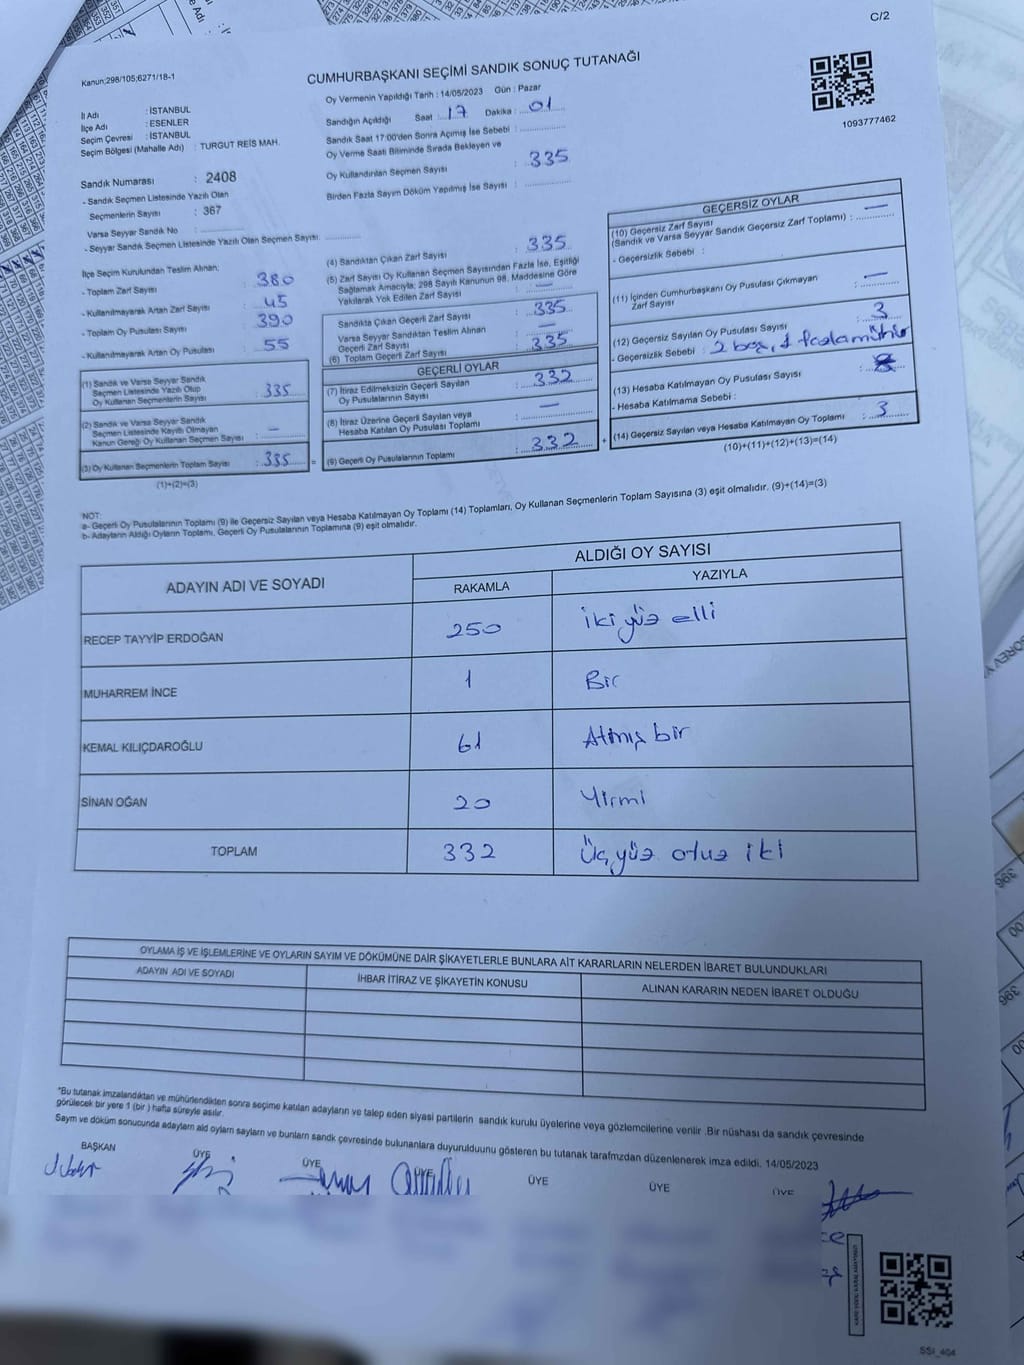 C/2
Kanun;298/105;6271/18-1
CUMHURBAŞKANI SEÇİMİ SANDIK SONUÇ TUTANAĞI
1093777462
İl Adı : İSTANBUL
İlçe Adı : ESENLER
Seçim Çevresi : İSTANBUL
Seçim Bölgesi (Mahalle Adı) : TURGUT REİS MAH.
Sandık Numarası : 2408
- Sandık Seçmen Listesinde Yazılı Olan
Seçmenlerin Sayısı : 367
Varsa Seyyar Sandık No :
- Seyyar Sandık Seçmen Listesinde Yazılı Olan Seçmen Sayısı:
Oy Vermenin Yapıldığı Tarih : 14/05/2023 Gün : Pazar
Sandığın Açıldığı Saat : 17 Dakika : 01
Sandık Saat 17:00'den Sonra Açımış İse Sebebi :
Oy Verme Saati Bitiminde Sırada Bekleyen ve
Oy Kullandırılan Seçmen Sayısı : 335
Birden Fazla Sayım Döküm Yapılmış İse Sayısı :
İlçe Seçim Kurulundan Teslim Alınan;
- Toplam Zarf Sayısı : 380
- Kullanılmayarak Artan Zarf Sayısı : 45
- Toplam Oy Pusulası Sayısı : 390
- Kullanılmayarak Artan Oy Pusulası : 55
(1) Sandık ve Varsa Seyyar Sandık
Seçmen Listesinde Yazılı Olup
Oy Kullanan Seçmenlerin Sayısı : 335
(2) Sandık ve Varsa Seyyar Sandık
Seçmen Listesinde Kayıtlı Olmayan
Kanun Gereği Oy Kullanan Seçmen Sayısı : —
(3) Oy Kullanan Seçmenlerin Toplam Sayısı : 335
(1)+(2)=(3)
(4) Sandıktan Çıkan Zarf Sayısı : 335
(5) Zarf Sayısı Oy Kullanan Seçmen Sayısından Fazla İse, Eşitliği
Sağlamak Amacıyla; 298 Sayılı Kanunun 98. Maddesine Göre
Yakılarak Yok Edilen Zarf Sayısı : —
Sandıkta Çıkan Geçerli Zarf Sayısı : 335
Varsa Seyyar Sandıktan Teslim Alınan
Geçerli Zarf Sayısı : —
(6) Toplam Geçerli Zarf Sayısı : 335
GEÇERLİ OYLAR
(7) İtiraz Edilmeksizin Geçerli Sayılan
Oy Pusulalarının Sayısı : 332
(8) İtiraz Üzerine Geçerli Sayılan veya
Hesaba Katılan Oy Pusulası Toplamı : —
(9) Geçerli Oy Pusulalarının Toplamı : 332
GEÇERSİZ OYLAR
(10) Geçersiz Zarf Sayısı
(Sandık ve Varsa Seyyar Sandık Geçersiz Zarf Toplamı) : —
- Geçersizlik Sebebi :
(11) İçinden Cumhurbaşkanı Oy Pusulası Çıkmayan
Zarf Sayısı : —
(12) Geçersiz Sayılan Oy Pusulası Sayısı : 3
- Geçersizlik Sebebi : 2 boş, 1 fazla mühür
(13) Hesaba Katılmayan Oy Pusulası Sayısı :
- Hesaba Katılmama Sebebi :
(14) Geçersiz Sayılan veya Hesaba Katılmayan Oy Toplamı : 3
(10)+(11)+(12)+(13)=(14)
NOT:
a- Geçerli Oy Pusulalarının Toplamı (9) ile Geçersiz Sayılan veya Hesaba Katılmayan Oy Toplamı (14) Toplamları, Oy Kullanan Seçmenlerin Toplam Sayısına (3) eşit olmalıdır. (9)+(14)=(3)
b- Adayların Aldığı Oyların Toplamı, Geçerli Oy Pusulalarının Toplamına (9) eşit olmalıdır.
ADAYIN ADI VE SOYADI
ALDIĞI OY SAYISI
RAKAMLA YAZIYLA
RECEP TAYYİP ERDOĞAN 250 iki yüz elli
MUHARREM İNCE 1 Bir
KEMAL KILIÇDAROĞLU 61 Atmış bir
SİNAN OĞAN 20 Yirmi
TOPLAM 332 Üç yüz otuz iki
OYLAMA İŞ VE İŞLEMLERİNE VE OYLARIN SAYIM VE DÖKÜMÜNE DAİR ŞİKAYETLERLE BUNLARA AİT KARARLARIN NELERDEN İBARET BULUNDUKLARI
ADAYIN ADI VE SOYADI İHBAR İTİRAZ VE ŞİKAYETİN KONUSU ALINAN KARARIN NEDEN İBARET OLDUĞU
*Bu tutanak imzalandıktan ve mühürlendikten sonra seçime katılan adayların ve talep eden siyasi partilerin sandık kurulu üyelerine veya gözlemcilerine verilir .Bir nüshası da sandık çevresinde
görülecek bir yere 1 (bir ) hafta süreyle asılır.
Sayım ve döküm sonucunda adayların ald oyların sayıları ve bunların sandk çevresinde bulunanlara duyurulduunu gösteren bu tutanak tarafmzdan düzenlenerek imza edildi. 14/05/2023
BAŞKAN ÜYE ÜYE ÜYE ÜYE ÜYE ÜYE
SSI_404